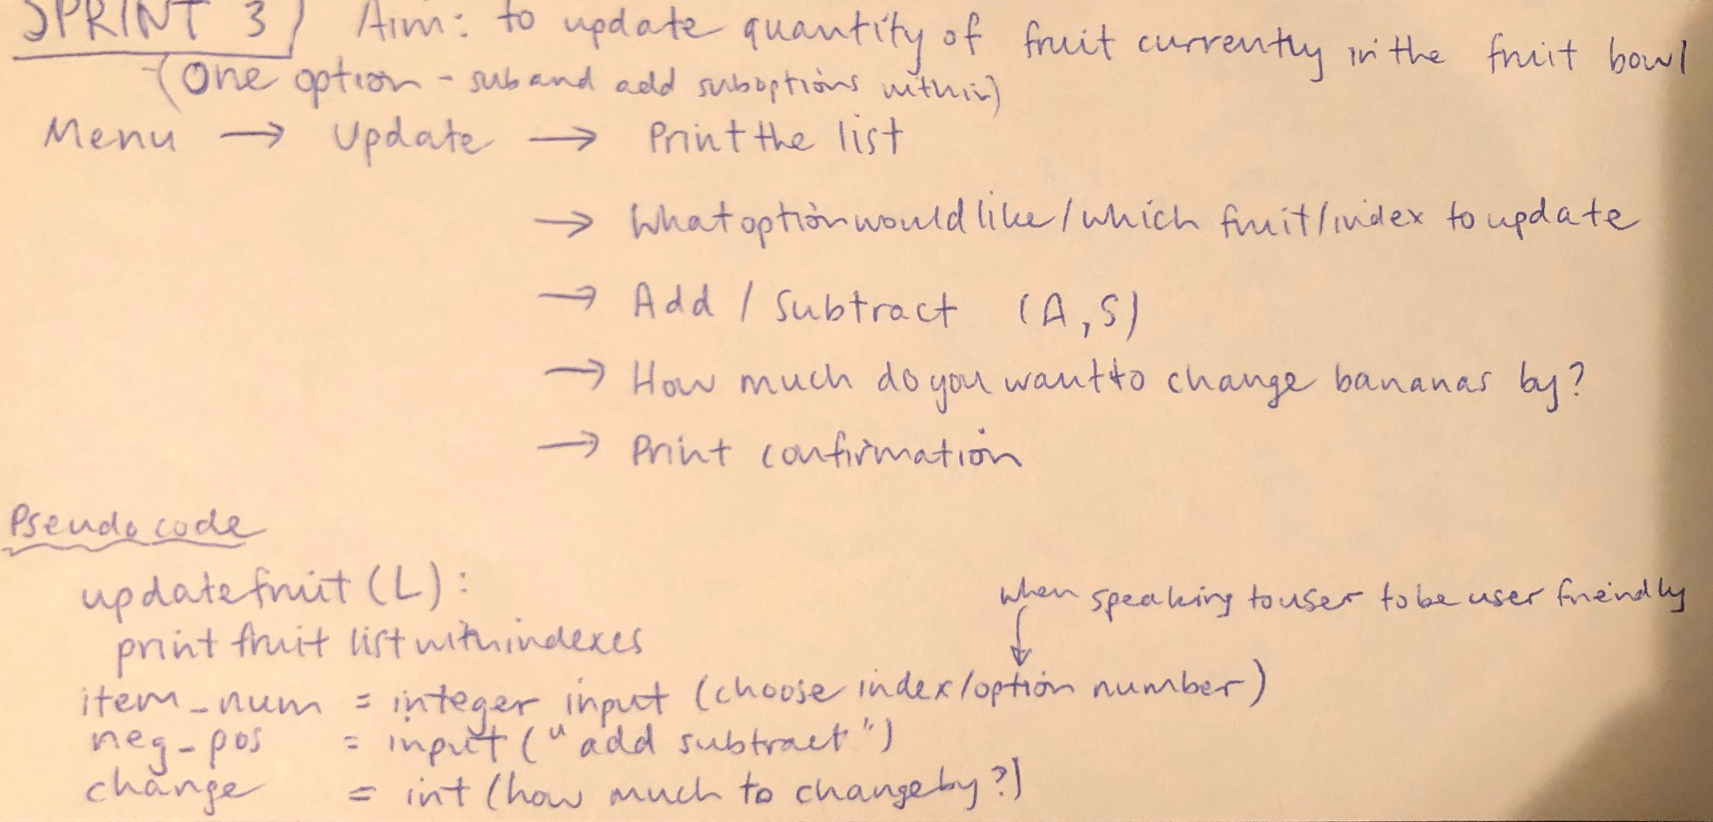 SPRINT 3 Aim: to update quantity of fruit currently in the fruit bowl
(One option - sub and add suboptions within)
Menu → Update → Print the list
→ What option would like / which fruit/index to update
→ Add / Subtract (A,S)
→ How much do you want to change bananas by?
→ Print confirmation
Pseudo code
update fruit (L):
when speaking to user to be user friendly
print fruit list with indexes
item_num = integer input (choose index/option number)
neg_pos = input ("add subtract")
change = int (how much to change by?)